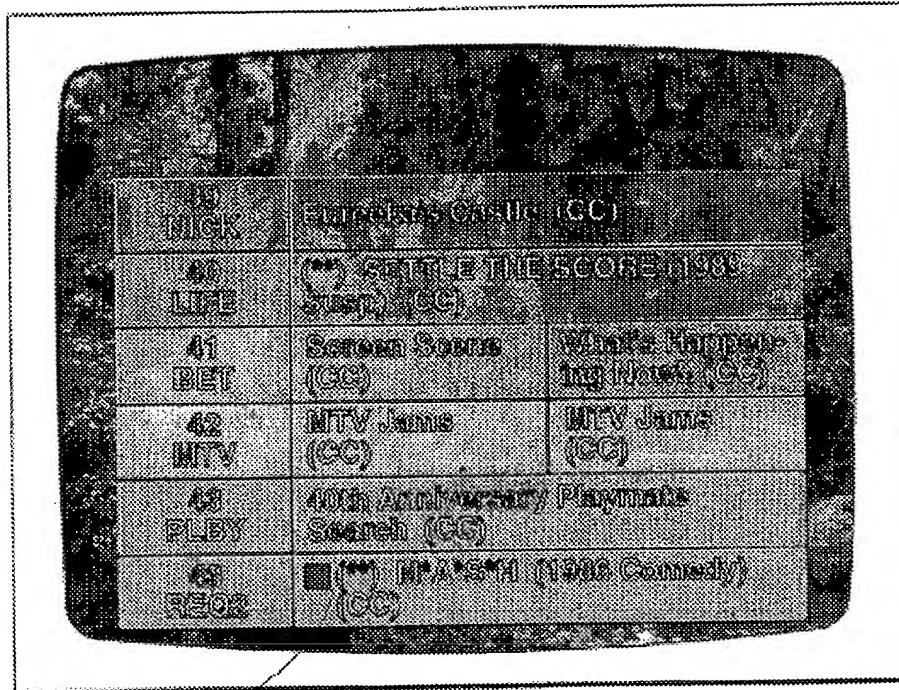 39
NICK
Eureeka's Castle (CC)
40
LIFE
(**) SETTLE THE SCORE (1989
Susp) (CC)
41
BET
Screen Scene
(CC)
What's Happen-
ing Now!! (CC)
42
MTV
MTV Jams
(CC)
MTV Jams
(CC)
43
PLBY
40th Anniversary Playmate
Search (CC)
REQ2
(**) M*A*S*H (1986 Comedy)
(CC)